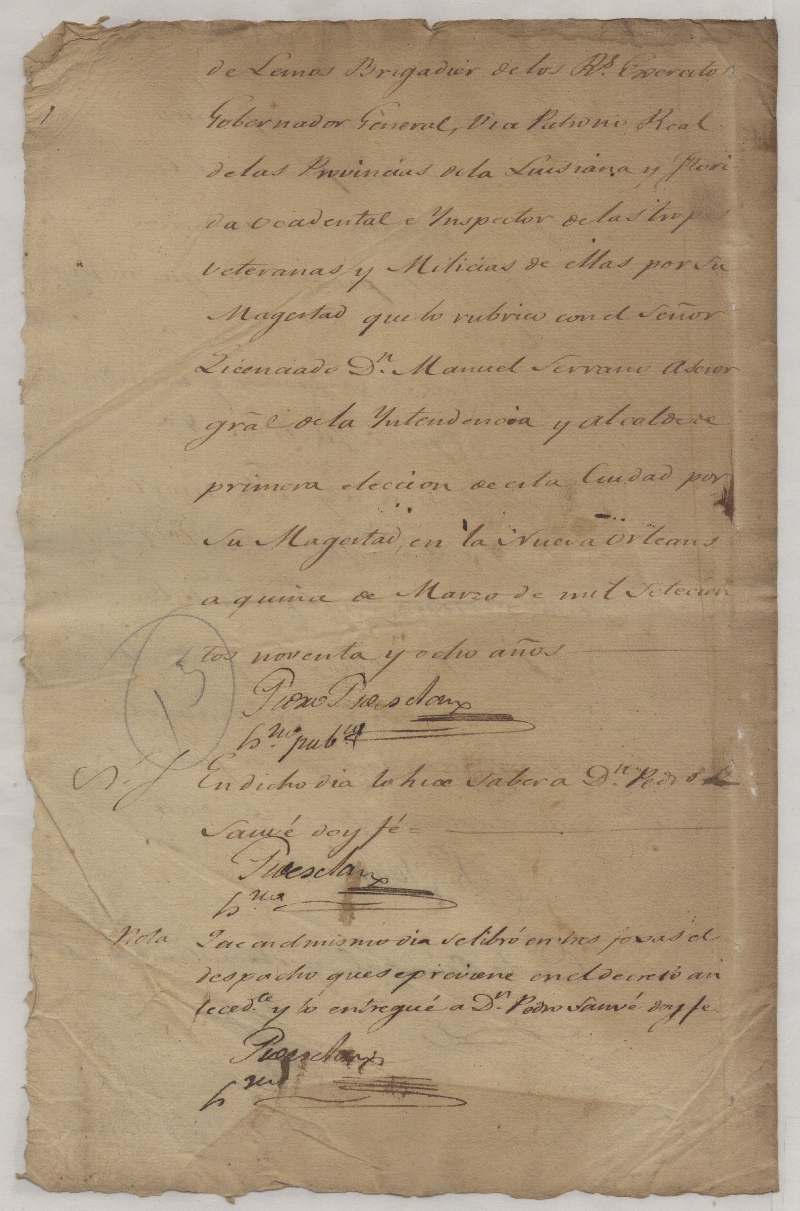 de Lemos Brigadier de los Rs. Exercitos
Gobernador General, Vice Patrono Real
de las Provincias de la Luisiana y Flori
da occidental e Ynspector de las tropas
veteranas y Milicias de ellas por su
Magestad que lo rubrico con el Señor
Licenciado Dn. Manuel Serrano Asesor
gral de la Yntendencia y Alcalde de
primera eleccion de esta Ciudad por
Su Magestad, en la Nueva Orleans
a quince de Marzo de mil setecien
tos noventa y ocho años
Pedro Pedesclaux
pub
13
En dicho dia lo hice saber a Dn. Pedro
Sauvé doy fé =
Pedesclaux
Nota Que en el mismo dia se libró en tres foxas el
despacho que se previene en el decreto an
teced.te y lo entregué a Dn. Pedro Sauvé doy fe
Pedesclaux